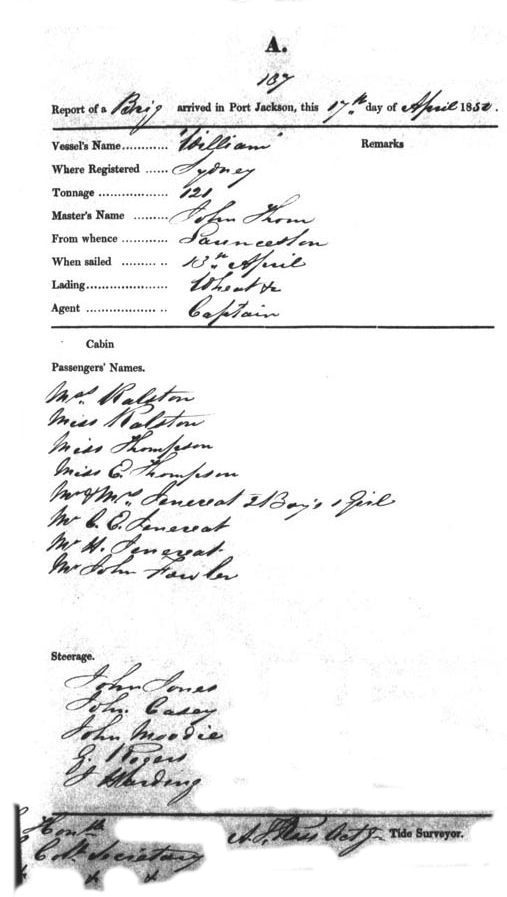 A.
187
Report of a Brig arrived in Port Jackson, this 17th day of April 1852.
Vessel's Name............ "William" Remarks
Where Registered ...... Sydney
Tonnage .................. 121
Master's Name ......... John Thom
From whence ............ Launceston
When sailed ......... .. 13th April
Lading..................... Wheat &c
Agent .................. .. Captain
Cabin
Passengers' Names.
Mrs. Ralston
Miss Ralston
Miss Thompson
Miss E. Thompson
Mr & Mrs. Jenereat 2 Boys 1 Girl
Mr C. E. Jenereat
Mr H. Jenereat
Mr John Fowler
Steerage.
John Jones
John Casey
John Moodie
G. Rogers
J Harding
Honble
Col. Secretary
Actg Tide Surveyor.